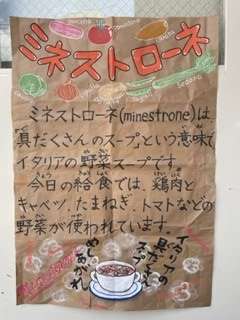 ミネストローネ
ミネストローネ(minestrone)は、
「具だくさんのスープ」という意味で
イタリアの野菜スープです。
今日の給食では、鶏肉と
キャベツ、たまねぎ、トマトなどの
野菜が使われています。
イタリアの
具だくさん
スープ
めしあがれ